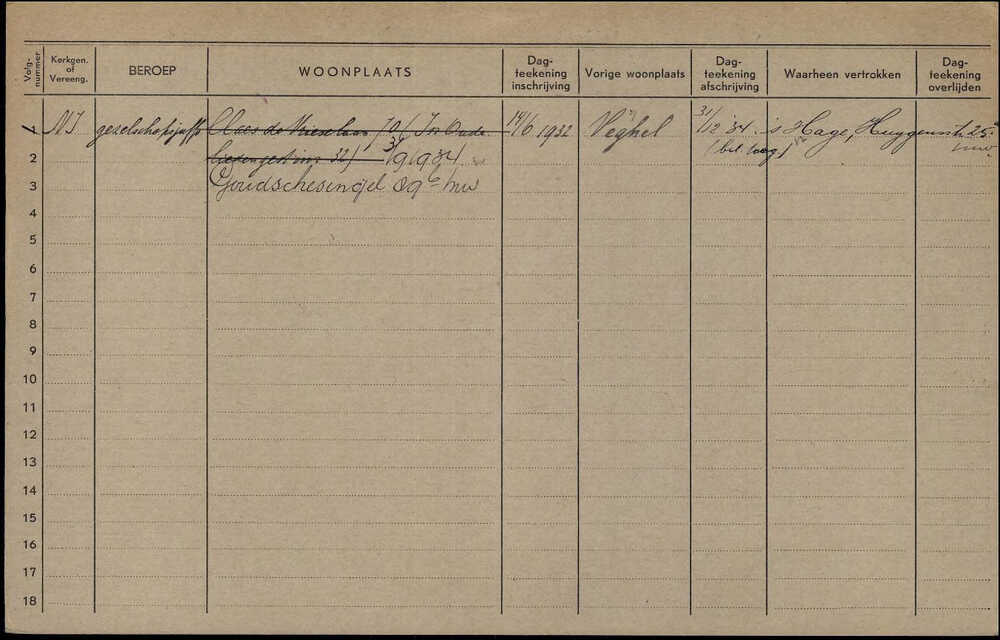 Volg-nummer
Kerkgen. of Vereeng.
BEROEP
WOONPLAATS
Dag-teekening inschrijving
Vorige woonplaats
Dag-teekening afschrijving
Waarheen vertrokken
Dag-teekening overlijden
1 NI gezelschapsjuffr Claes de Vrieselaan 70 / Isr Oude 14/6 1932 Veghel 31/12 '34 's Hage, Huygenstr. 25
2 liedengesticht 32) 3/9 1934 (bel. laag)
3 Goudschesingel 89
4
5
6
7
8
9
10
11
12
13
14
15
16
17
18